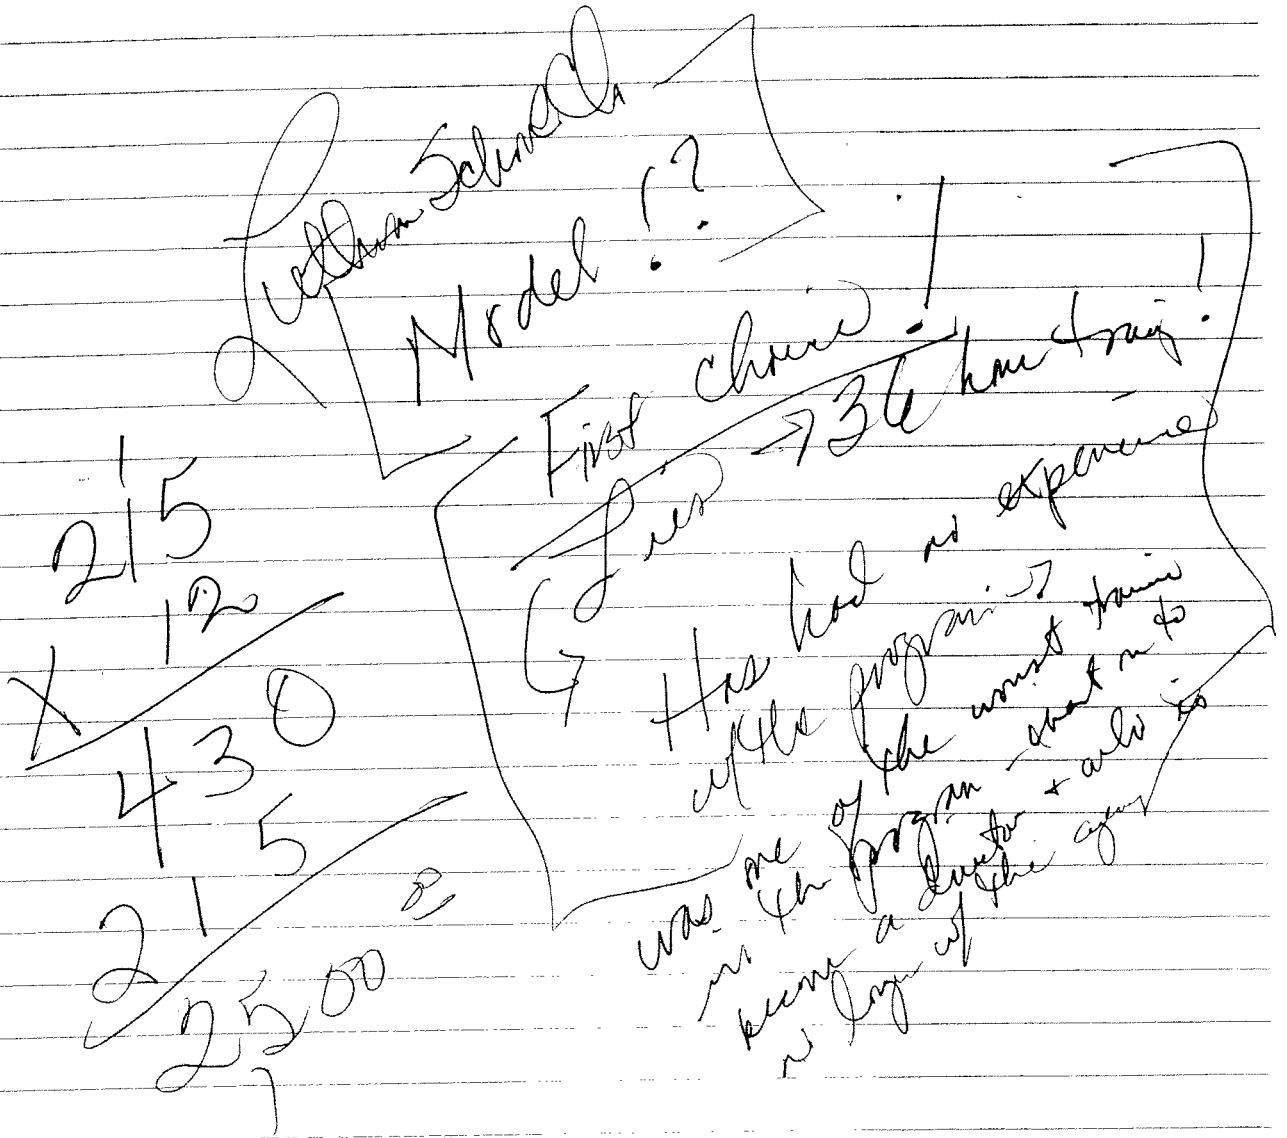 Model !?
First choice !
Lies → 36 hour traing !
Has had no experience
w/ this program ?
was one of the worst trainie
in the program - went on to
become a director & also is
no longer w/ the agency
1
215
X 12
430
215
2500